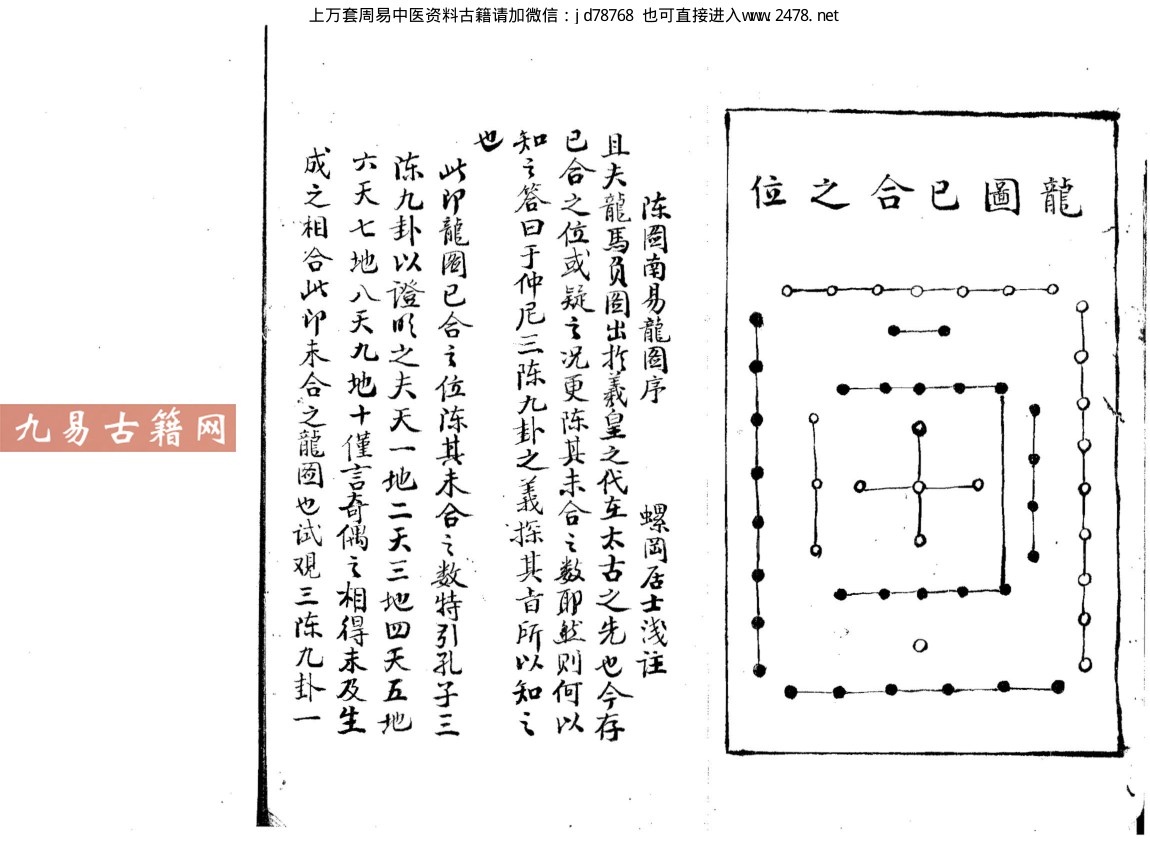 上万套周易中医资料古籍请加微信：jd78768 也可直接进入www.2478.net
龍圖已合之位
陈圖南易龍圖序 螺岡居士浅註
且夫龍馬負圖出於羲皇之代在太古之先也今存
已合之位或疑之况更陈其未合之数耶然则何以
知之答曰于仲尼三陈九卦之義探其旨所以知之
也
此即龍圖已合之位陈其未合之数特引孔子三
陈九卦以證明之夫天一地二天三地四天五地
六天七地八天九地十僅言奇偶之相得未及生
成之相合此即未合之龍圖也试观三陈九卦一
九易古籍网